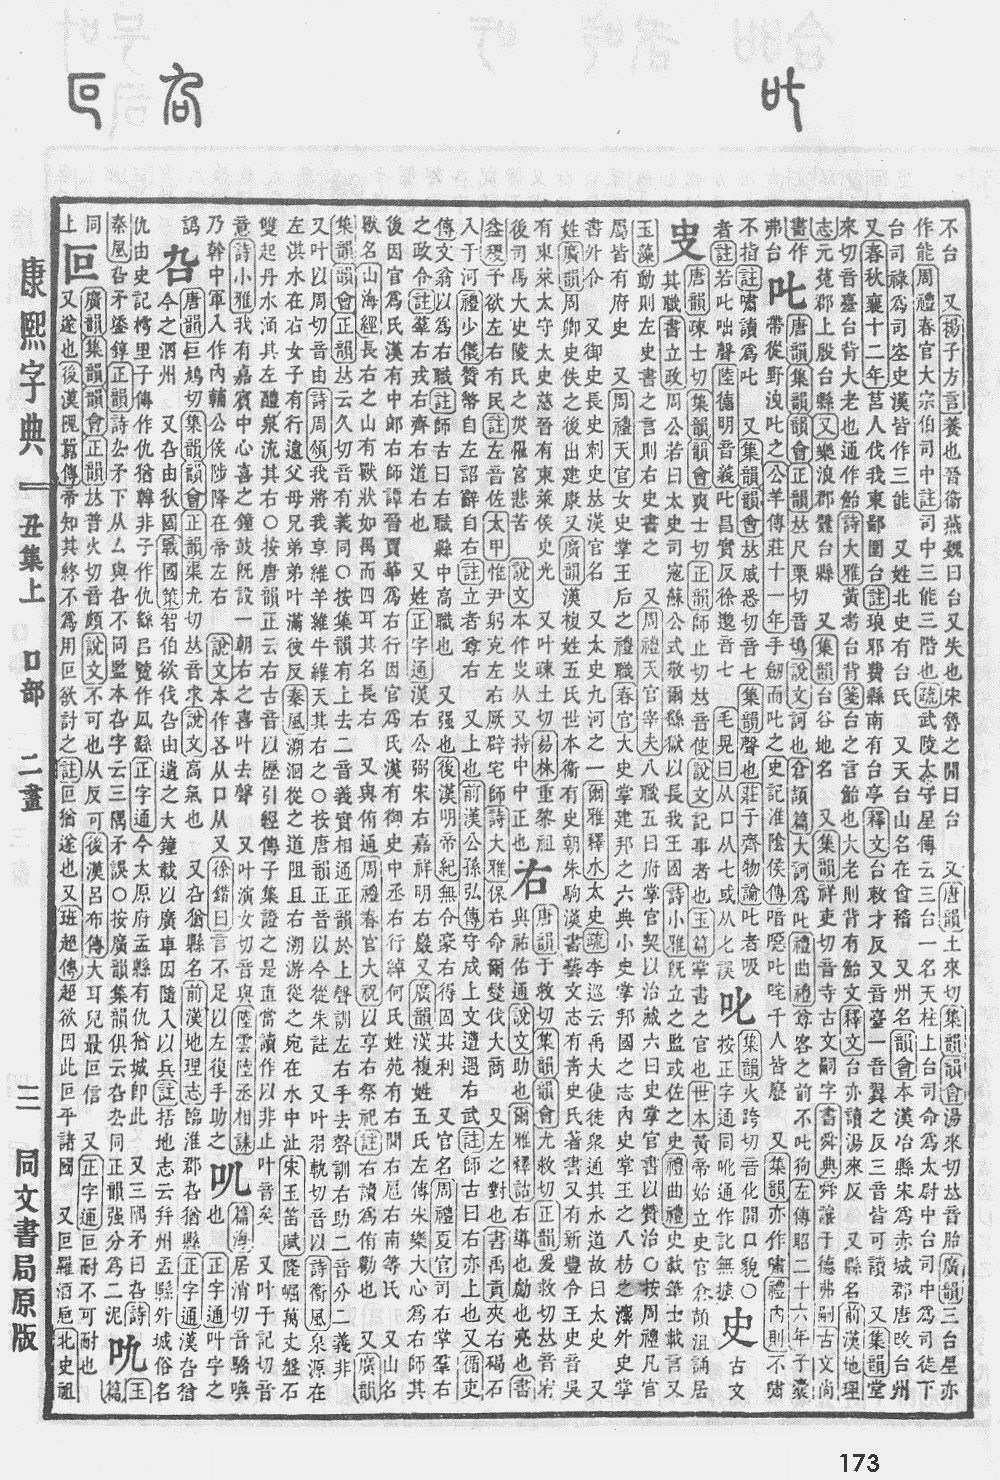 康熙字典
丑集上
口部
二畫
三
同文書局原版
不台 又揚子方言養也晉衞燕魏曰台又失也宋魯之閒曰台 又唐韻土來切集韻韻會湯來切𠀤音胎廣韻三台星亦
作能周禮春官大宗伯司中註司中三能三階也疏武陵太守星傳云三台一名天柱上台司命爲太尉中台司中爲司徒下
台司祿爲司空史漢皆作三能 又姓北史有台氏 又天台山名在會稽 又州名韻會本漢冶縣宋爲赤城郡唐改台州
又春秋襄十二年莒人伐我東鄙圍台註琅邪費縣南有台亭釋文台敕才反又音臺一音翼之反三音皆可讀 又集韻堂
來切音臺台背大老也通作鮐詩大雅黃耇台背箋台之言鮐也大老則背有鮐文釋文台亦讀湯來反 又縣名前漢地理
志元菟郡上殷台縣又樂浪郡台縣 又集韻台谷地名 又集韻祥吏切音寺古文嗣字書舜典舜讓于德弗嗣古文尚
書作弗台
叱 唐韻集韻韻會正韻𠀤尺栗切音鴟說文訶也倉頡篇大訶爲叱禮曲禮尊客之前不叱狗左傳昭二十六年子囊
帶從野洩叱之公羊傳莊十一年手劒而叱之史記淮陰侯傳喑噁叱咤千人皆廢 又集韻亦作嘯禮內則不嘯
不指註嘯讀爲叱 又集韻韻會𠀤戚悉切音七集韻聲也莊子齊物論叱者吸
者註若叱咄聲陸德明音義叱昌實反徐邀音七 毛晃曰从口从七或从𠤎誤
𠮟 集韻火跨切音化開口貌○
按正字通同吪通作化無據
史 古文
㕜
唐韻疎士切集韻韻會爽士切正韻師止切𠀤音使說文記事者也玉篇掌書之官也世本黃帝始立史官倉頡沮誦居
其職書立政周公若曰太史司寇蘇公式敬爾繇獄以長我王國詩小雅旣立之監或佐之史禮曲禮史載筆士載言又
玉藻動則左史書之言則右史書之 又周禮天官宰夫八職五曰府掌官契以治藏六曰史掌官書以贊治○按周禮凡官
屬皆有府史 又周禮天官女史掌王后之禮職春官大史掌建邦之六典小史掌邦國之志內史掌王之八枋之灋外史掌
書外令 又御史長史刺史𠀤漢官名 又太史九河之一爾雅釋水太史疏李巡云禹大使徒衆通其水道故曰太史 又
姓廣韻周卿史佚之後出建康又廣韻漢複姓五氏世本衞有史朝朱駒漢書藝文志有靑史氏著書又有新豐令王史音吳
有東萊太守太史慈晉有東萊侯史光 又叶疎土切易林重黎祖
後司馬大史陵氏之災雁宮悲苦 說文本作㕜从又持中中正也
右 唐韻于救切集韻韻會尤救切正韻爰救切𠀤音宥
與祐佑通說文助也爾雅釋詁右導也勴也亮也書
益稷予欲左右有民註左音佐太甲惟尹躬克左右厥辟宅師詩大雅保右命爾燮伐大商 又左之對也書禹貢夾右碣石
入于河禮少儀贊幣自左詔辭自右註立者尊右 又上也前漢公孫弘傳守成上文遭遇右武註師古曰右亦上也又循吏
傳文翁以爲右職註師古曰右職縣中高職也 又强也後漢明帝紀無令豪右得固其利 又官名周禮夏官司右掌羣右
之政令註羣右戎右齊右道右也 又姓正字通漢右公弼宋右嘉祥明右巖又廣韻漢複姓五氏左傳宋樂大心爲右師其
後因官爲氏漢有中郞右師譚晉賈華爲右行因官爲氏漢有御史中丞右行綽何氏姓苑有右閭右扈右南等氏 又山名
獸名山海經長右之山有獸狀如禺而四耳其名長右 又與侑通周禮春官大祝以享右祭祀註右讀爲侑勸也 又廣韻
集韻韻會正韻𠀤云久切音有義同○按集韻有上去二音義實相通正韻於上聲訓左右手去聲訓右助二音分二義非
又叶以周切音由詩周頌我將我享維羊維牛維天其右之○按唐韻正音以今從朱註 又叶羽軌切音以詩衞風泉源在
左淇水在右女子有行遠父母兄弟弟叶滿彼反秦風溯洄從之道阻且右溯游從之宛在水中沚宋玉笛賦隆崛萬丈盤石
雙起丹水涌其左醴泉流其右○按唐韻正云右古音以歷引經傳子集證之是直當讀作以非止叶音矣 又叶于記切音
意詩小雅我有嘉賓中心喜之鐘鼓旣設一朝右之喜叶去聲 又叶演女切音與陸雲陸丞相誄
乃幹中軍入作內輔公侯陟降在帝左右 說文本作㕛从口从又徐鍇曰言不足以左復手助之
叧 篇海居消切音驕喚
也 正字通叫字之
譌
叴 唐韻巨鳩切集韻韻會正韻渠尤切𠀤音求說文高氣也 又叴猶縣名前漢地理志臨淮郡叴猶縣正字通漢叴猶
今之泗州 又叴由狄國戰國策智伯欲伐叴由遺之大鐘載以廣車因隨入以兵註括地志云幷州盂縣外城俗名
仇由史記樗里子傳作仇猶韓非子作仇繇呂覽作夙繇正字通今太原府盂縣有仇猶城卽此 又三隅矛曰叴詩
秦風叴矛鋈錞正韻詩厹矛下从厶與叴不同監本叴字云三隅矛誤○按廣韻集韻俱云叴厹同正韻强分爲二泥
叿 篇
同上
叵 廣韻集韻韻會正韻𠀤普火切音頗說文不可也从反可後漢呂布傳大耳兒最叵信 又正字通叵耐不可耐也
又遂也後漢隗囂傳帝知其終不爲用叵欲討之註叵猶遂也又班超傳超欲因此叵平諸國 又叵羅酒巵北史祖
173